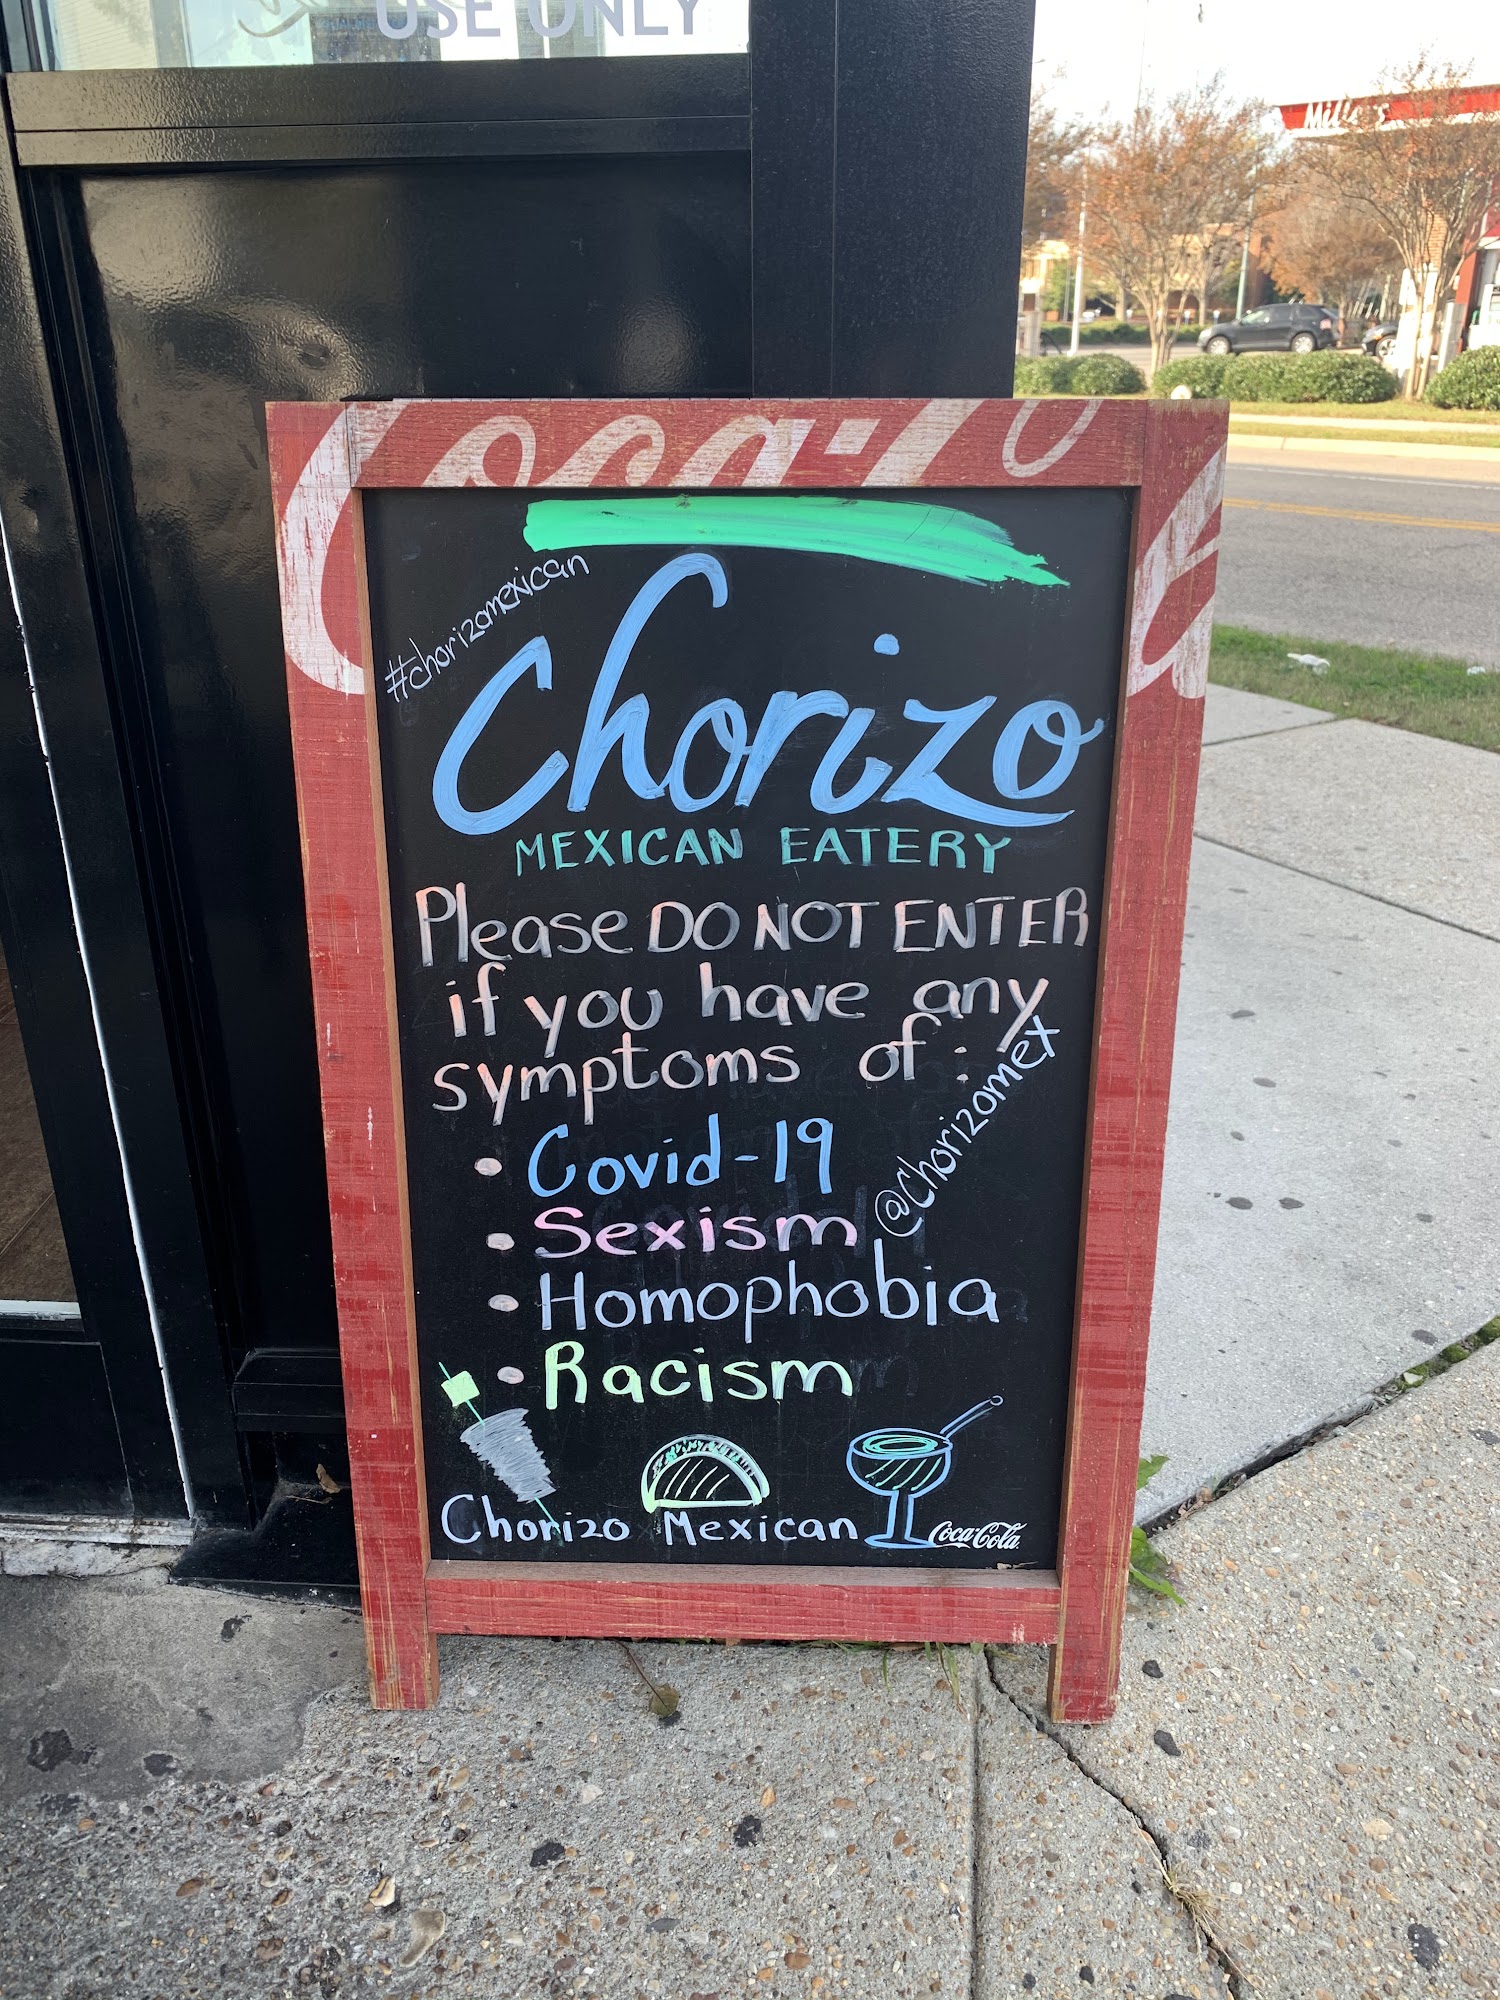 USE ONLY
Miller's
Coca-Co
#chorizomexican
Chorizo
MEXICAN EATERY
Please DO NOT ENTER
if you have any
symptoms of:
@Chorizomex
• Covid-19
• Sexism
• Homophobia
• Racism
Chorizo Mexican
Coca-Cola